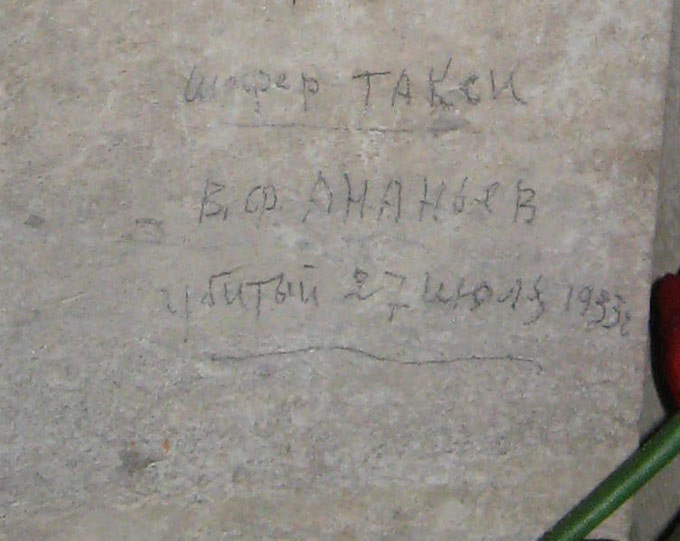 шофер ТАКСИ
В. Ф. АНАНЬЕВ
убитый 27 июля 1933г